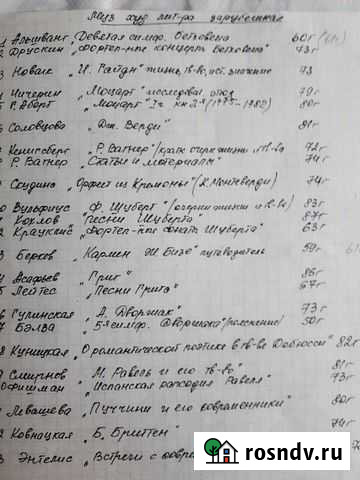 Муз худ лит-ра зарубежная
1 Альшванг Девятая симф. Бетховена 60г
2 Друскин „Фортеп-ные концерты Бетховена" 73г
3 Новак „Й. Гайдн" жизнь, тв-во, ист. значение 73
4 Чичерин „Моцарт" исследоват. этюд 79г
5 Г. Аберт „Моцарт" Iч кн 2я (1775-1782) 80г
6 Соловцова „Дж. Верди" 81г
Кенигсберг „Р. Вагнер" /кратк очерк жизни и тв-ва 72г
Р. Вагнер „Статьи и материалы" 74г
Скудина „Орфей из Кремоны" (К. Монтеверди) 74г
0 Вульфиус „Ф. Шуберт" /очерки жизни и тв-ва/ 83г
1 Хохлов „Песни Шуберта" 87г
2 Крауклис „Фортеп-ные сонаты Шуберта" 63г
3 Берков „Кармен" Ж Бизе" путеводитель 59г
4 Асафьев „Григ" 86г
5 Лейтес „Песни Грига" 67г
6 Гулинская „А. Дворжак" 73г
7 Бэлза „5я симф. Дворжака" /пояснение/ 50г
8 Куницкая „О романтической поэтике в тв-ве Дебюсси" 82г
9 Смирнов „М. Равель и его тв-во" 81г
0 Фишман „Испанская рапсодия Равеля" 73г
Левашева „Пуччини и его современники" 80г
2 Ковнацкая „Б. Бриттен" 74г
3 Энтелис „Встречи с
rosndv.ru